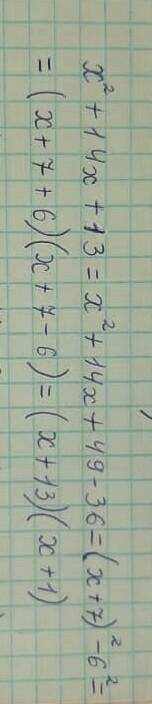 x² + 14x + 13 = x² + 14x + 49 - 36 = (x + 7)² - 6² =
= (x + 7 + 6)(x + 7 - 6) = (x + 13)(x + 1)